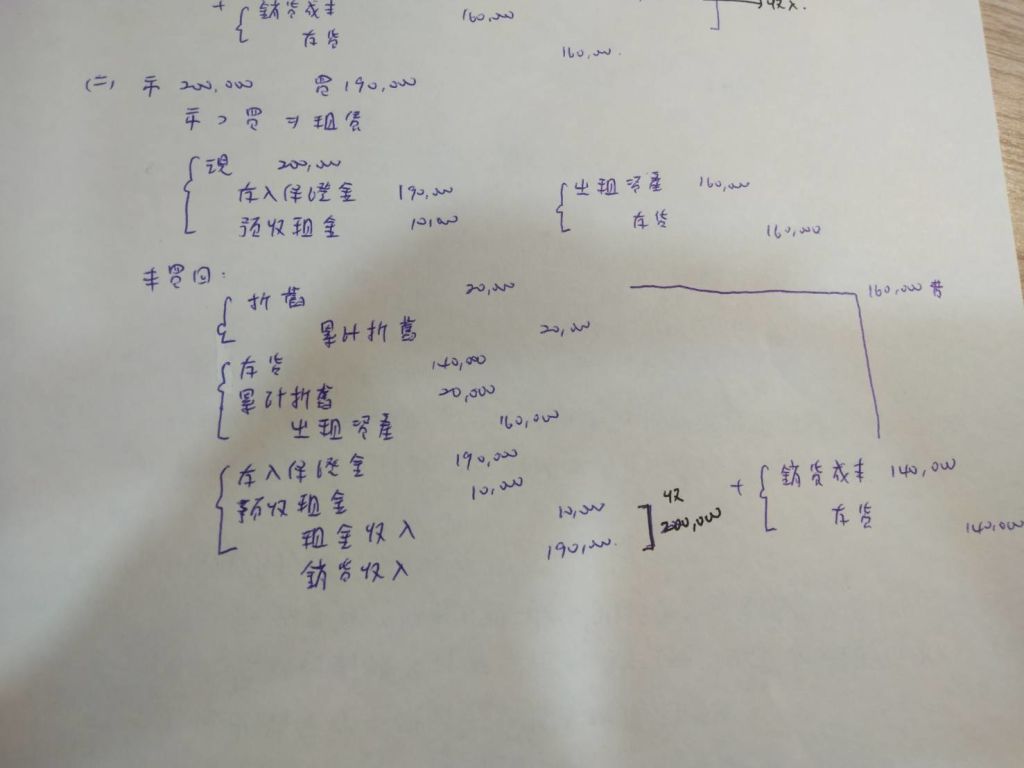 + 銷貨成本 160,000 → 收入.
存貨 160,000.
(二) 平 200,000 買 190,000
平 > 買 ⇒ 租賃
現 200,000
存入保證金 190,000 出租資產 160,000
預收租金 10,000 存貨 160,000
未買回:
折舊 20,000 160,000 昔
累計折舊 20,000
存貨 140,000
累計折舊 20,000
出租資產 160,000
存入保證金 190,000 + 銷貨成本 140,000
預收租金 10,000 存貨 140,000
租金收入 10,000 收 200,000
銷貨收入 190,000.